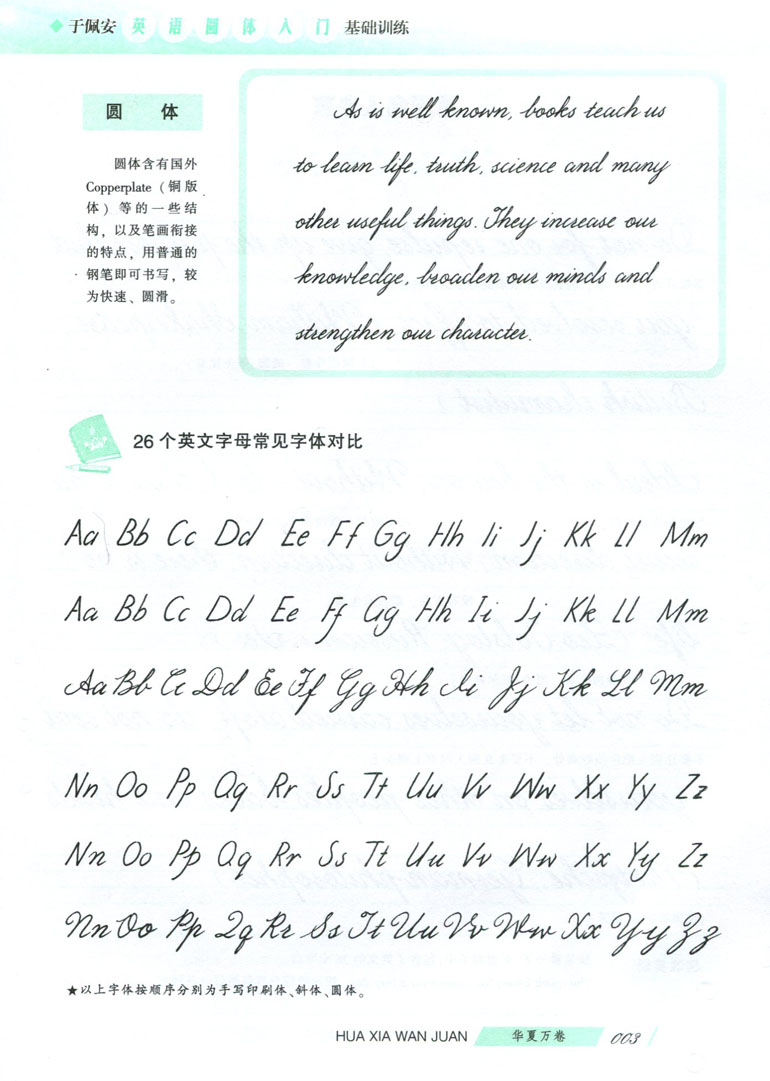 于佩安 英语圆体入门 基础训练
圆 体
圆体含有国外
Copperplate（铜版
体）等的一些结
构，以及笔画衔接
的特点，用普通的
钢笔即可书写，较
为快速、圆滑。
As is well known, books teach us
to learn life, truth, science and many
other useful things. They increase our
knowledge, broaden our minds and
strengthen our character.
26个英文字母常见字体对比
Aa Bb Cc Dd Ee Ff Gg Hh Ii Jj Kk Ll Mm
Aa Bb Cc Dd Ee Ff Gg Hh Ii Jj Kk Ll Mm
Aa Bb Cc Dd Ee Ff Gg Hh Ii Jj Kk Ll Mm
Nn Oo Pp Qq Rr Ss Tt Uu Vv Ww Xx Yy Zz
Nn Oo Pp Qq Rr Ss Tt Uu Vv Ww Xx Yy Zz
Nn Oo Pp Qq Rr Ss Tt Uu Vv Ww Xx Yy Zz
★以上字体按顺序分别为手写印刷体、斜体、圆体。
HUA XIA WAN JUAN 华夏万卷 003